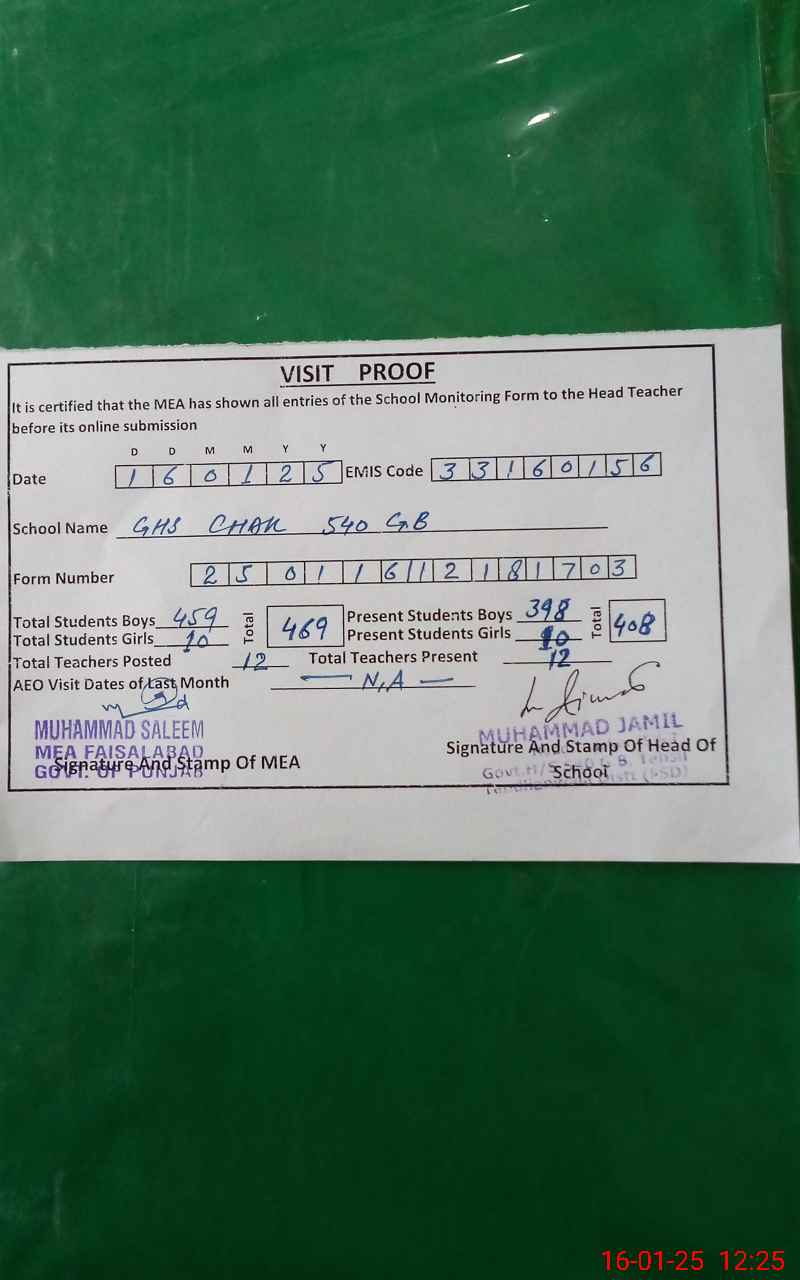 VISIT PROOF
It is certified that the MEA has shown all entries of the School Monitoring Form to the Head Teacher
before its online submission
D D M M Y Y
Date 1 6 0 1 2 5 EMIS Code 3 3 1 6 0 1 5 6
School Name GHS CHAK 540 GB
Form Number 2 5 0 1 1 6 1 2 1 8 1 7 0 3
Total Students Boys 459 Total 469 Present Students Boys 398 Total 408
Total Students Girls 10 Present Students Girls 10
Total Teachers Posted 12 Total Teachers Present 12
AEO Visit Dates of Last Month — N,A —
MUHAMMAD SALEEM
MEA FAISALABAD
GOVT. OF PUNJAB
Signature And Stamp Of MEA
MUHAMMAD JAMIL
Signature And Stamp Of Head Of
School
16-01-25 12:25